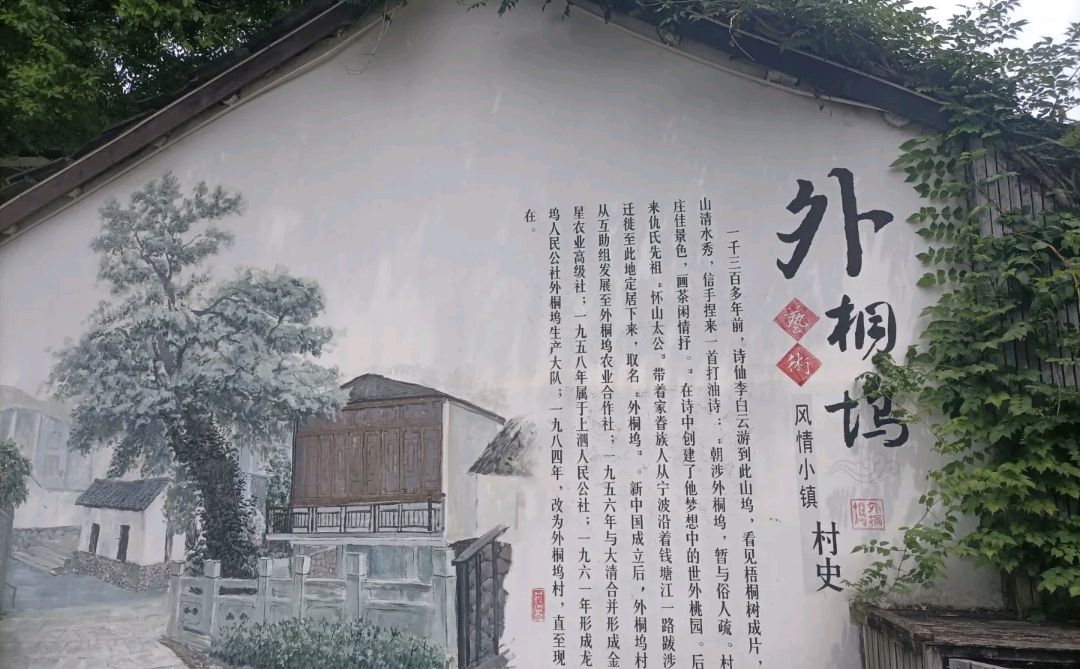 外桐坞
藝術
风情小镇
村史
外桐坞
一千三百多年前，诗仙李白云游到此山坞，看见梧桐树成片，
山清水秀，信手捏来一首打油诗：“朝涉外桐坞，暂与俗人疏。村
庄佳景色，画茶闲情抒。”在诗中创建了他梦想中的世外桃园。后
来仇氏先祖“怀山太公”带着家眷族人从宁波沿着钱塘江一路跋涉
迁徙至此地定居下来，取名“外桐坞”。新中国成立后，外桐坞村
从互助组发展至外桐坞农业合作社；一九五六年与大清合并形成金
星农业高级社；一九五八年属于上泗人民公社；一九六一年形成龙
坞人民公社外桐坞生产大队；一九八四年，改为外桐坞村，直至现
在。